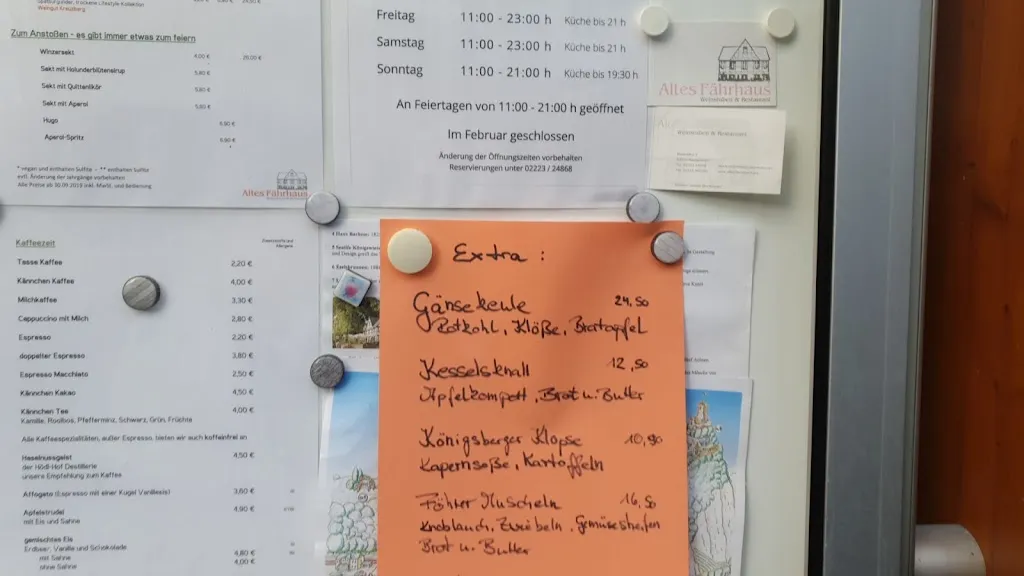 Weingut Kreuzberg
Zum Anstoßen - es gibt immer etwas zum feiern
Winzersekt 4,00 € 25,00 €
Sekt mit Holunderblütensirup 5,80 €
Sekt mit Quittenlikör 5,80 €
Sekt mit Aperol
Hugo 6,90 €
Aperol-Spritz 6,90 €
* vegan und enthalten Sulfite - ** enthalten Sulfite
evtl. Änderung der Jahrgänge vorbehalten
Alle Preise ab 30.09.2019 inkl. MwSt. und Bedienung
Altes Fährhaus
Freitag 11:00 - 23:00 h Küche bis 21 h
Samstag 11:00 - 23:00 h Küche bis 21 h
Sonntag 11:00 - 21:00 h Küche bis 19:30 h
An Feiertagen von 11:00 - 21:00 h geöffnet
Im Februar geschlossen
Änderung der Öffnungszeiten vorbehalten
Reservierungen unter 02223 / 24868
Altes Fährhaus
Weinstuben & Restaurant
Weinstuben & Restaurant
Kaffeezeit
Tasse Kaffee 2,20 €
Kännchen Kaffee 4,00 €
Milchkaffee 3,30 €
Cappuccino mit Milch 2,80 €
Espresso 2,20 €
doppelter Espresso 3,80 €
Espresso Macchiato 2,50 €
Kännchen Kakao 4,50 €
Kännchen Tee 4,00 €
Kamille, Rooibos, Pfefferminz, Schwarz, Grün, Früchte
Alle Kaffeespezialitäten, außer Espresso, bieten wir auch koffeinfrei an
Haselnussgeist 4,50 €
der Hödl-Hof Destillerie
unsere Empfehlung zum Kaffee
Affogato (Espresso mit einer Kugel Vanilleeis) 3,60 €
Apfelstrudel 4,90 €
mit Eis und Sahne
gemischtes Eis
Erdbeer, Vanille und Schokolade
mit Sahne 4,80 €
ohne Sahne 4,00 €
Extra :
Gänsekeule 24,50
Rotkohl, Klöße, Bratapfel
Kesselsknall 12,50
Apfelkompott, Brot u. Butter
Königsberger Klopse 10,90
Kapernsoße, Kartoffeln
Föhrer Muscheln 16,50
Knoblauch, Zwiebeln, Gemüsestreifen
Brot u. Butter